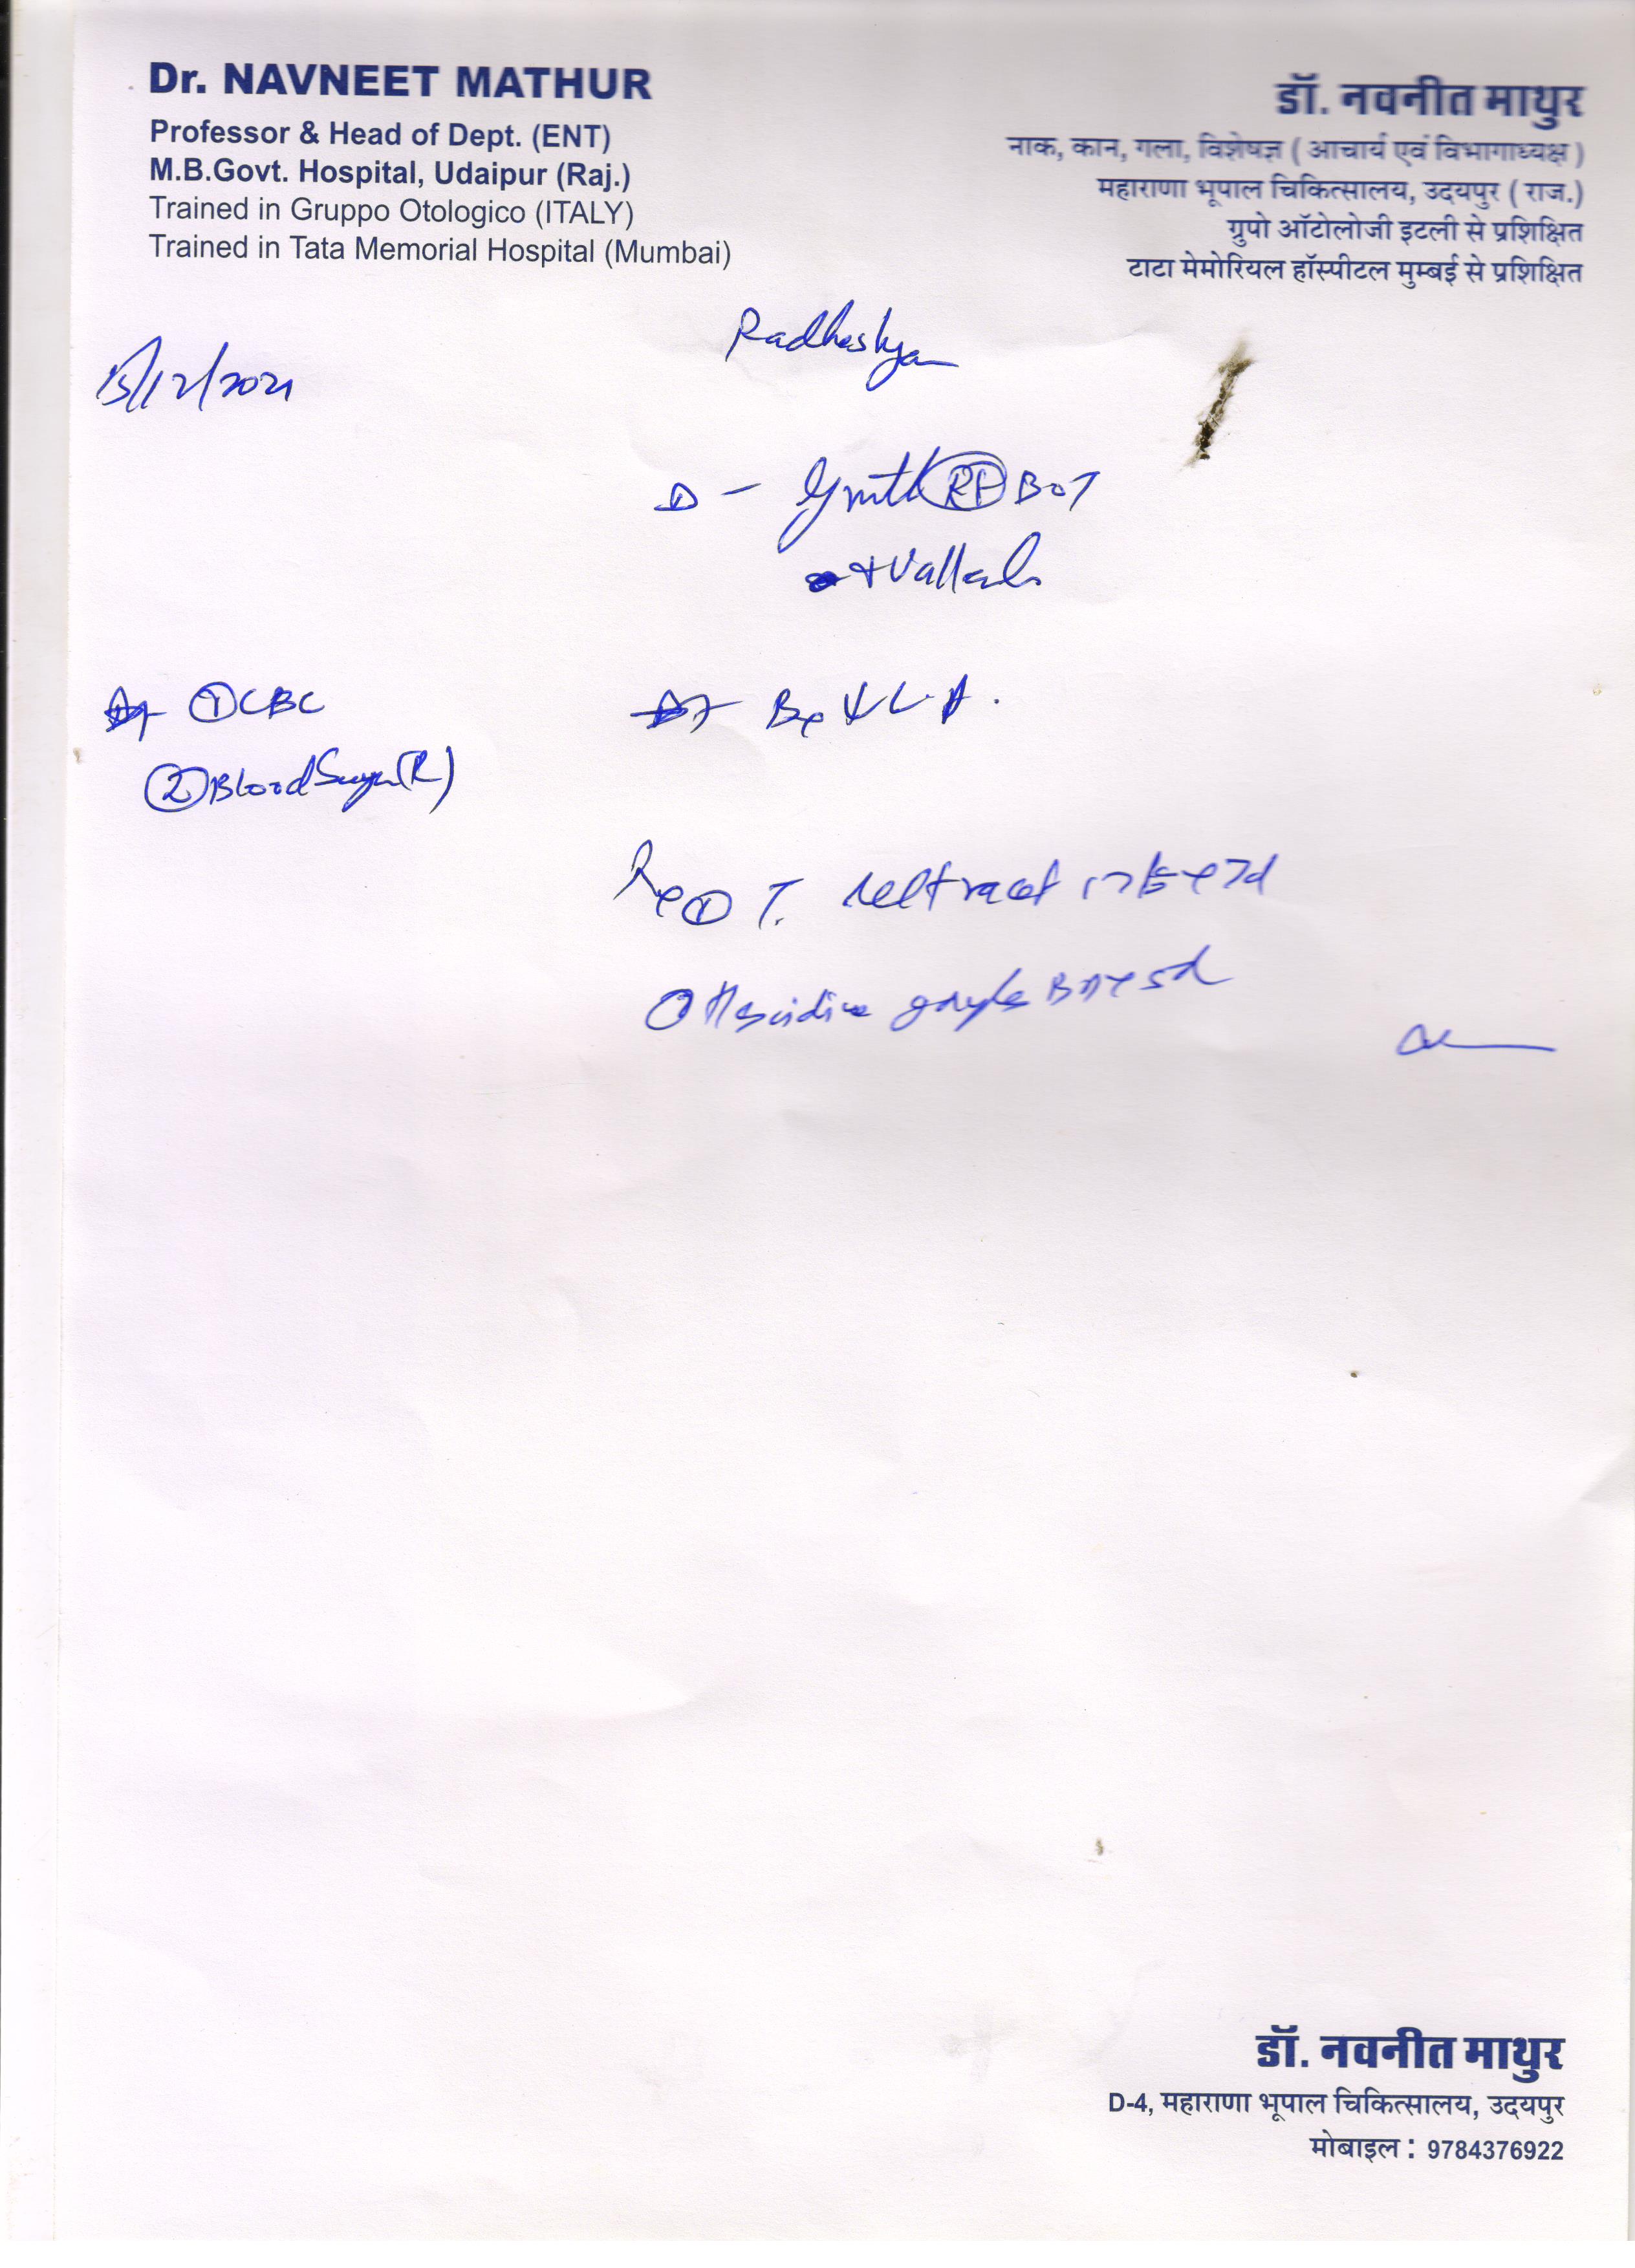 Dr. NAVNEET MATHUR
Professor & Head of Dept. (ENT)
M.B.Govt. Hospital, Udaipur (Raj.)
Trained in Gruppo Otologico (ITALY)
Trained in Tata Memorial Hospital (Mumbai)
डॉ. नवनीत माथुर
नाक, कान, गला, विशेषज्ञ ( आचार्य एवं विभागाध्यक्ष )
महाराणा भूपाल चिकित्सालय, उदयपुर ( राज.)
ग्रुपो ऑटोलोजी इटली से प्रशिक्षित
टाटा मेमोरियल हॉस्पीटल मुम्बई से प्रशिक्षित
Radheshyam
15/12/2021
D - BOT
+
① CBC
② Blood Sugar (R)
① T.
gargle
डॉ. नवनीत माथुर
D-4, महाराणा भूपाल चिकित्सालय, उदयपुर
मोबाइल : 9784376922